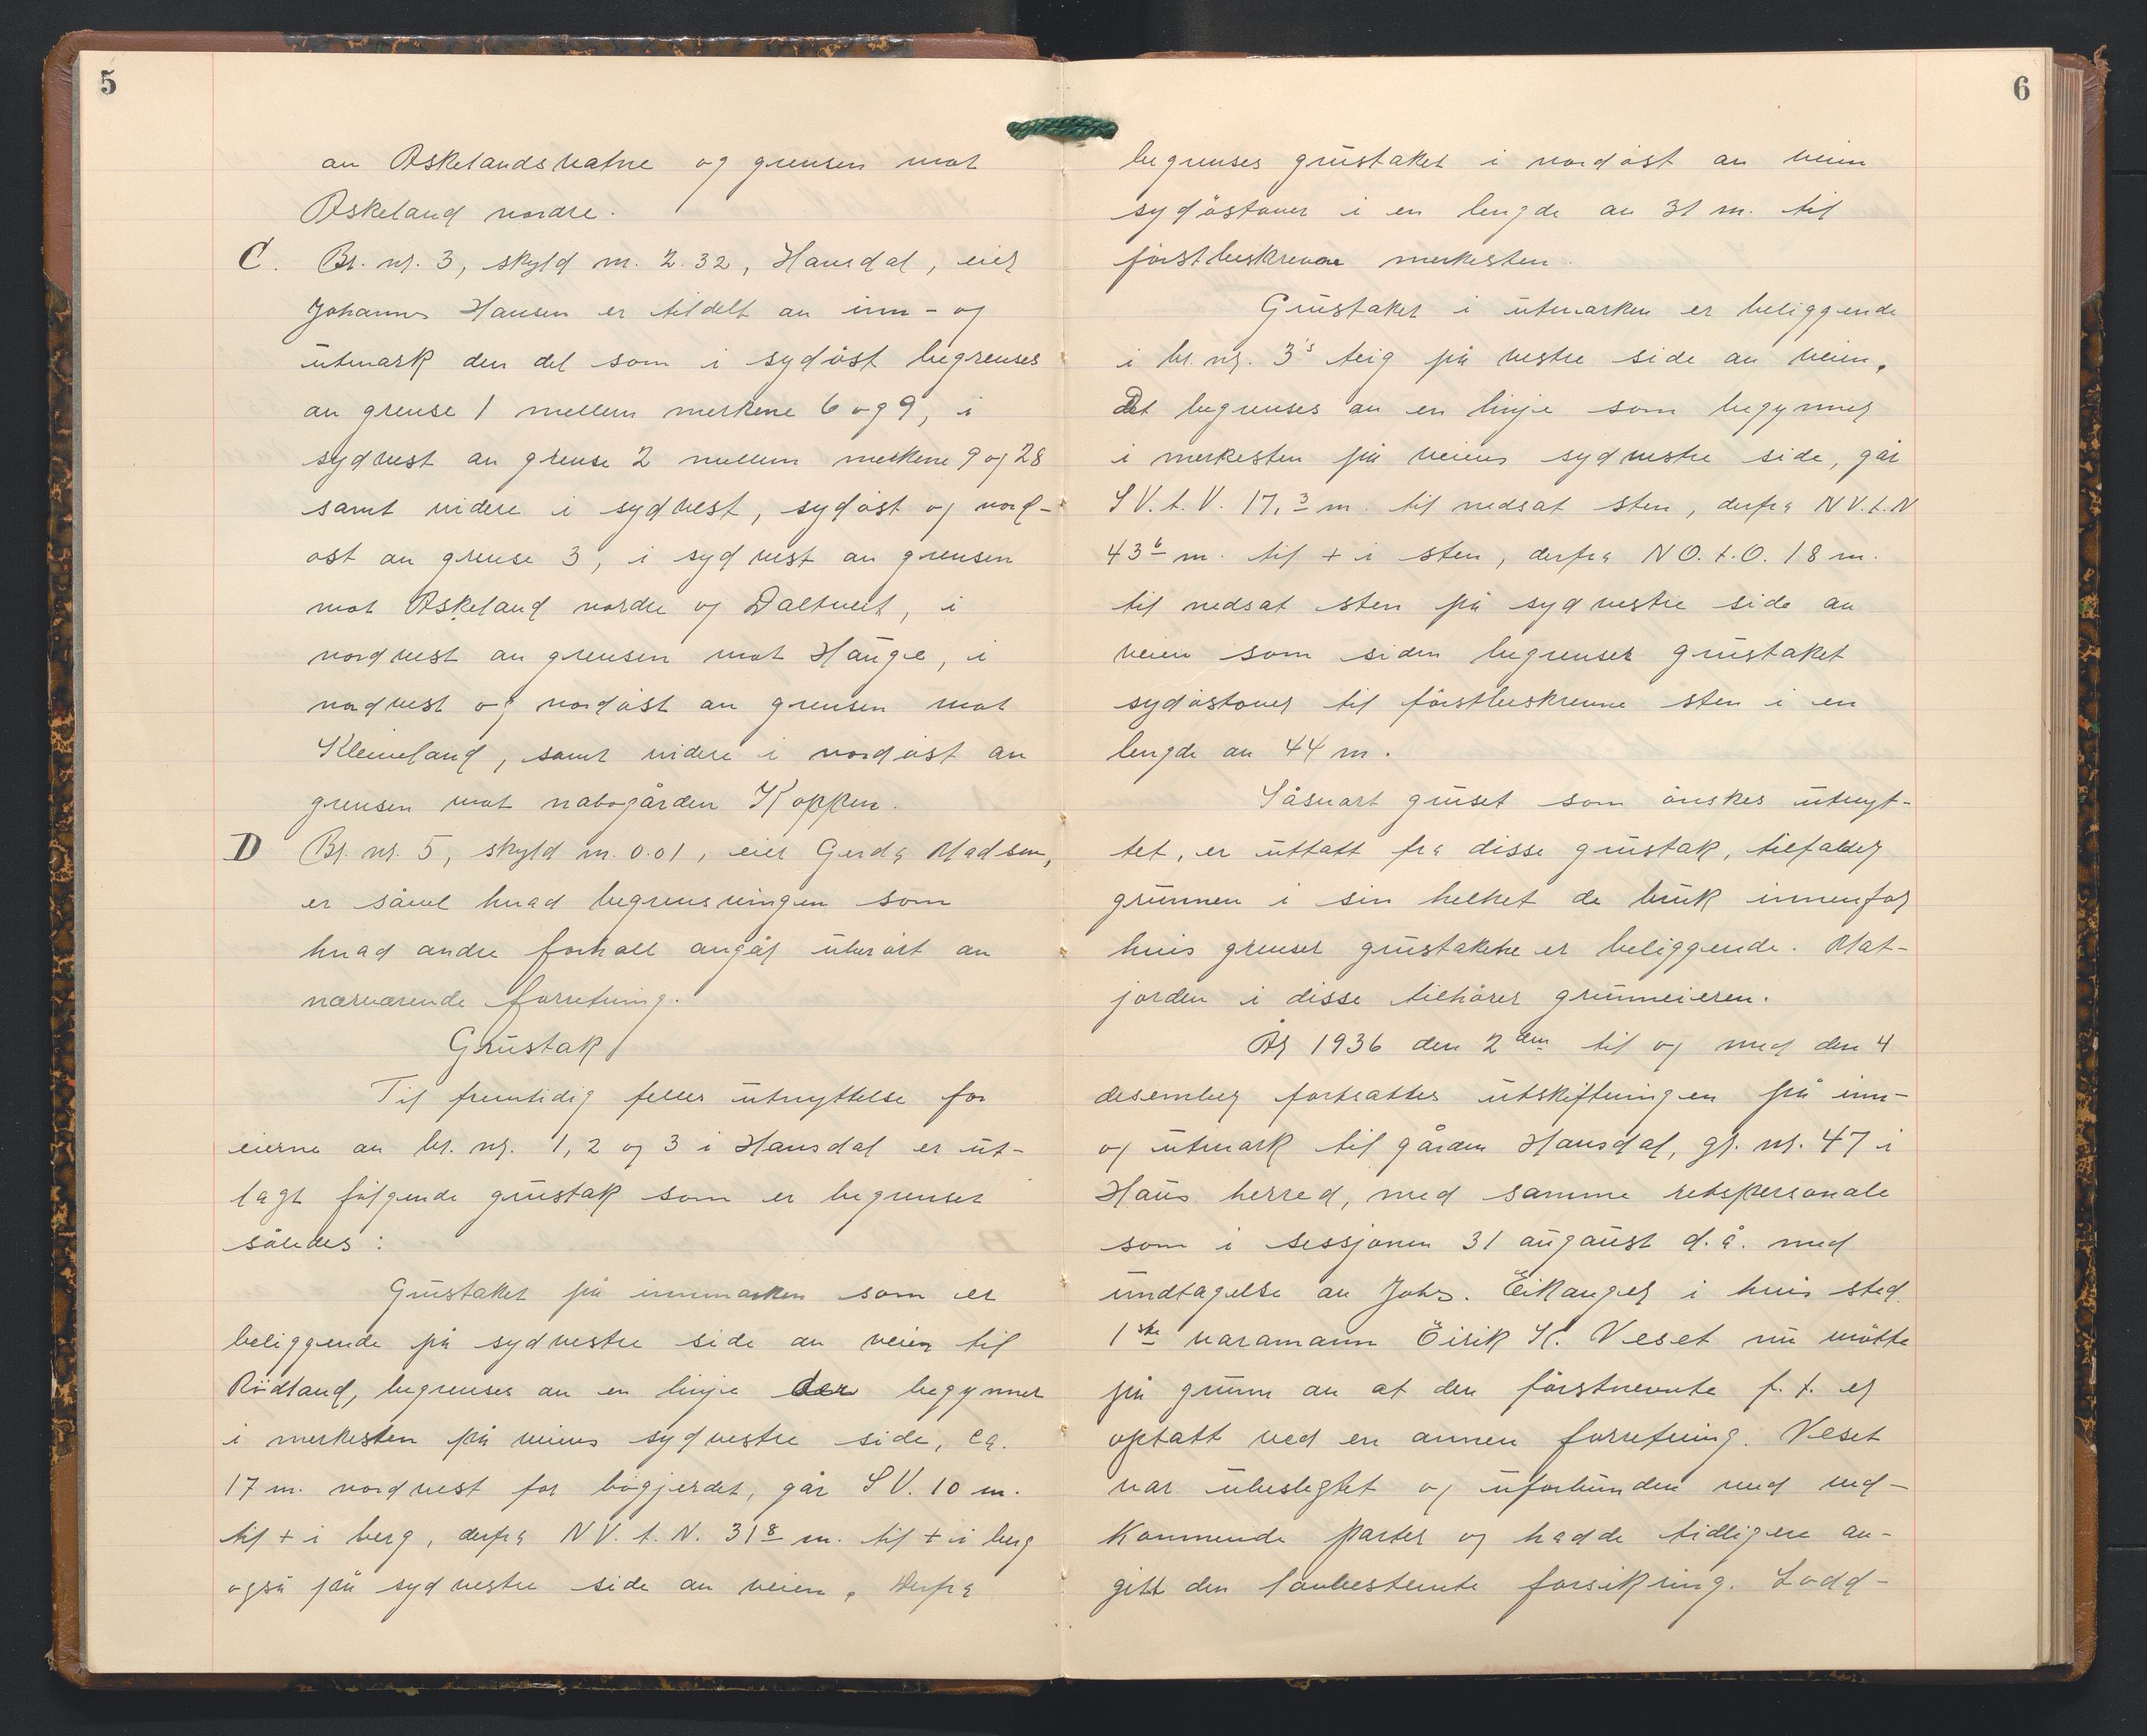 5
av Askelandsvatne og grensen mot
Askeland nordre.
C. Br. nr. 3, skyld m. 2.32, Hansdal, eier
Johannes Hansen er tildelt av inn- og
utmark den del som i sydöst begrenses
av grense 1 mellem merkene 6 og 9, i
sydvest av grense 2 mellem merkene 9 og 28
samt videre i sydvest, sydöst og nord-
ost av grense 3, i sydvest av grensen
mot Askeland nordre og Daltveit, i
nordvest av grensen mot Hauge, i
nordvest og nordöst av grensen mot
Kleiveland, samt videre i nordöst av
grensen mot nabogården Koppen.
D Br. nr. 5, skyld m. 0.01, eier Gerda Madsen,
er såvel hvad begrensningen som
hvad andre forhold angår uberört av
nærværende forretning.
Grustak
Til fremtidig felles utnyttelse for
eierne av br. nr. 1, 2 og 3 i Hansdal er ut-
lagt fölgende grustak som er begrenset
således:
Grustaket på innmarken som er
beliggende på sydvestre side av veien til
Rödland, begrenses av en linje der begynner
i merkesten på veiens sydvestre side, ca.
17 m. nordvest for bögjerdet, går SV. 10 m.
til + i berg, derfra NV. t. N. 31 8 m. til + i berg
også på sydvestre side av veien. Derfra
6
begrenses grustaket i nordöst av veien
sydöstover i en lengde av 31 m. til
förstbeskrevne merkesten.
Grustaket i utmarken er beliggende
i br. nr. 3's teig på vestre side av veien.
Det begrenses av en linje som begynner
i merkesten på veiens sydvestre side, går
SV. t. V. 17,3 m. til nedsat sten, derfra NV. t. N
43 6 m. til + i sten, derfra NO. t. O. 18 m.
til nedsat sten på sydvestre side av
veien som siden begrenser grustaket
sydöstover til förstbeskrevne sten i en
lengde av 44 m.
Såsnart gruset som önskes utnyt-
tet, er uttatt fra disse grustak, tilfalder
grunnen i sin helhet de bruk innenfor
hvis grenser grustakene er beliggende. Mat-
jorden i disse tilhörer grunneieren.
År 1936 den 2den til og med den 4
desember fortsattes utskiftningen på inn-
og utmark til gården Hansdal, gr. nr. 47 i
Haus herred, med samme retspersonale
som i sessjonen 31 augaust d.å. med
undtagelse av Johs. Eikanger i hvis sted
1ste varamann Eirik K. Veset nu mötte
på grunn av at den förstnevnte f. t. er
optatt ved en annen forretning. Veset
var ubeslegtet og uforbunden med ved-
kommende parter og hadde tidligere av-
gitt den lovbestemte forsikring. Lodd-